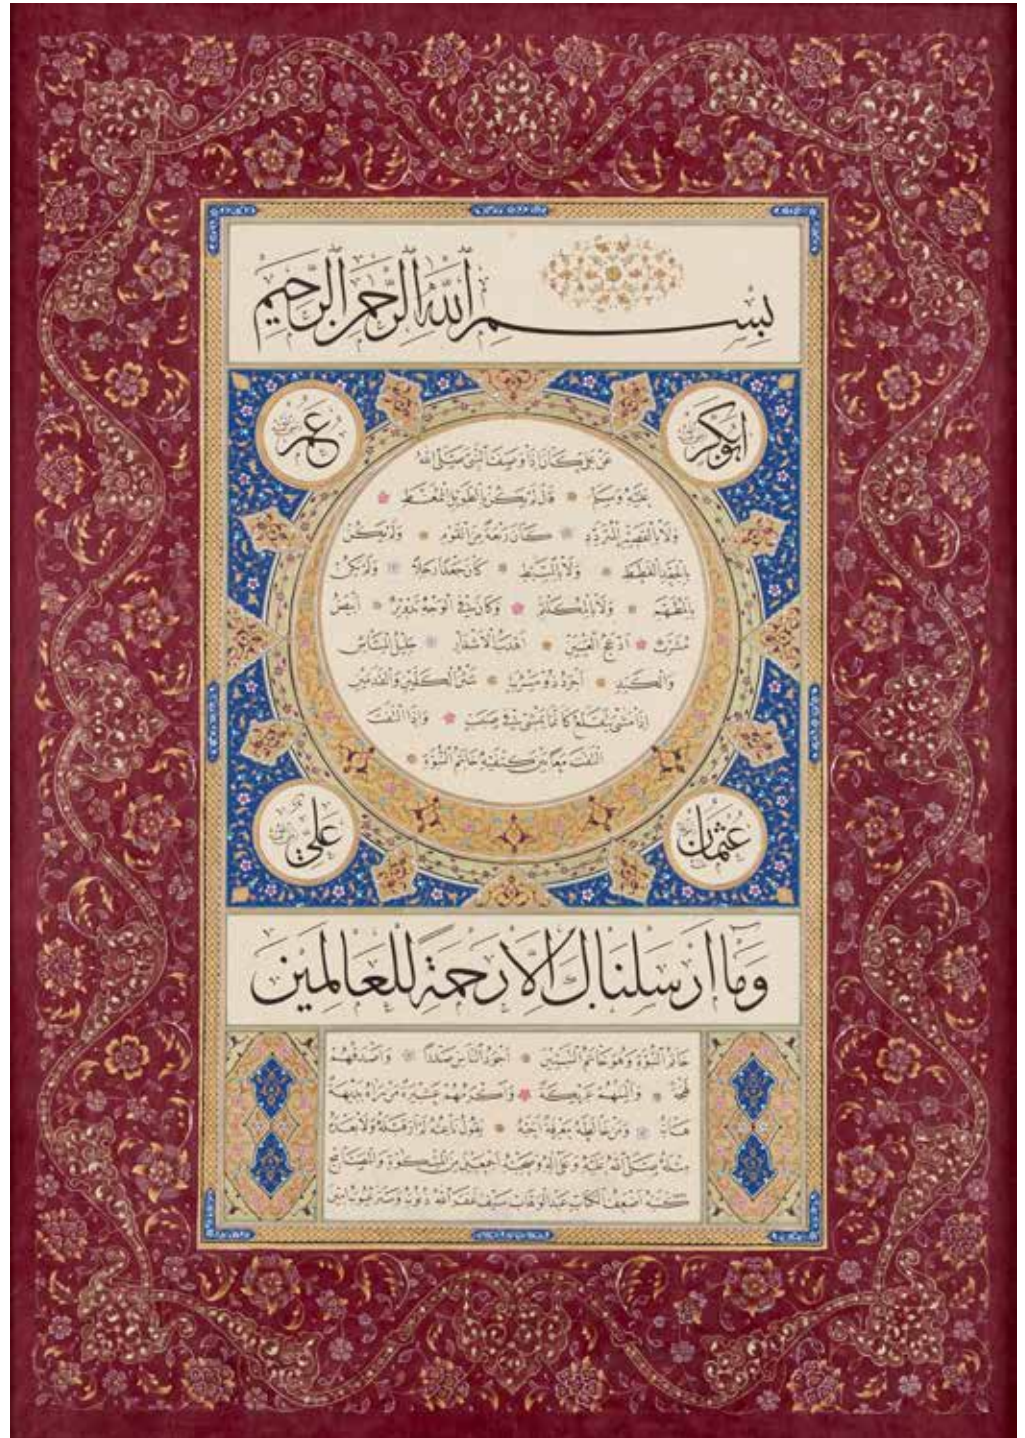 بسم الله الرحمن الرحيم
ابوبكر
عمر
عن علي كان اذا وصف النبي صلى الله
عليه وسلم قال لم يكن بالطويل الممغط
ولا بالقصير المتردد كان ربعة من القوم ولم يكن
بالجعد القطط ولا بالسبط كان جعدا رجلا ولم يكن
بالمطهم ولا بالمكلثم وكان في الوجه تدوير ابيض
مشرب ادعج العينين اهدب الاشفار جليل المشاش
والكتد اجرد ذو مسربة شثن الكفين والقدمين
اذا مشى يتقلع كانما يمشي في صبب واذا التفت
التفت معا بين كتفيه خاتم النبوة
عثمان
علي
وما ارسلناك الا رحمة للعالمين
خاتم النبوة وهو خاتم النبيين اجود الناس صدرا واصدقهم
لهجة والينهم عريكة واكرمهم عشيرة من راه بديهة
هابه ومن خالطه معرفة احبه يقول ناعته لم ار قبله ولا بعده
مثله صلى الله عليه وعلى اله وصحبه اجمعين من المشكوة والمصابيح
كتبه اضعف الكتاب عبد الوهاب سيف غفر الله ذنوبه وستر عيوبه امين